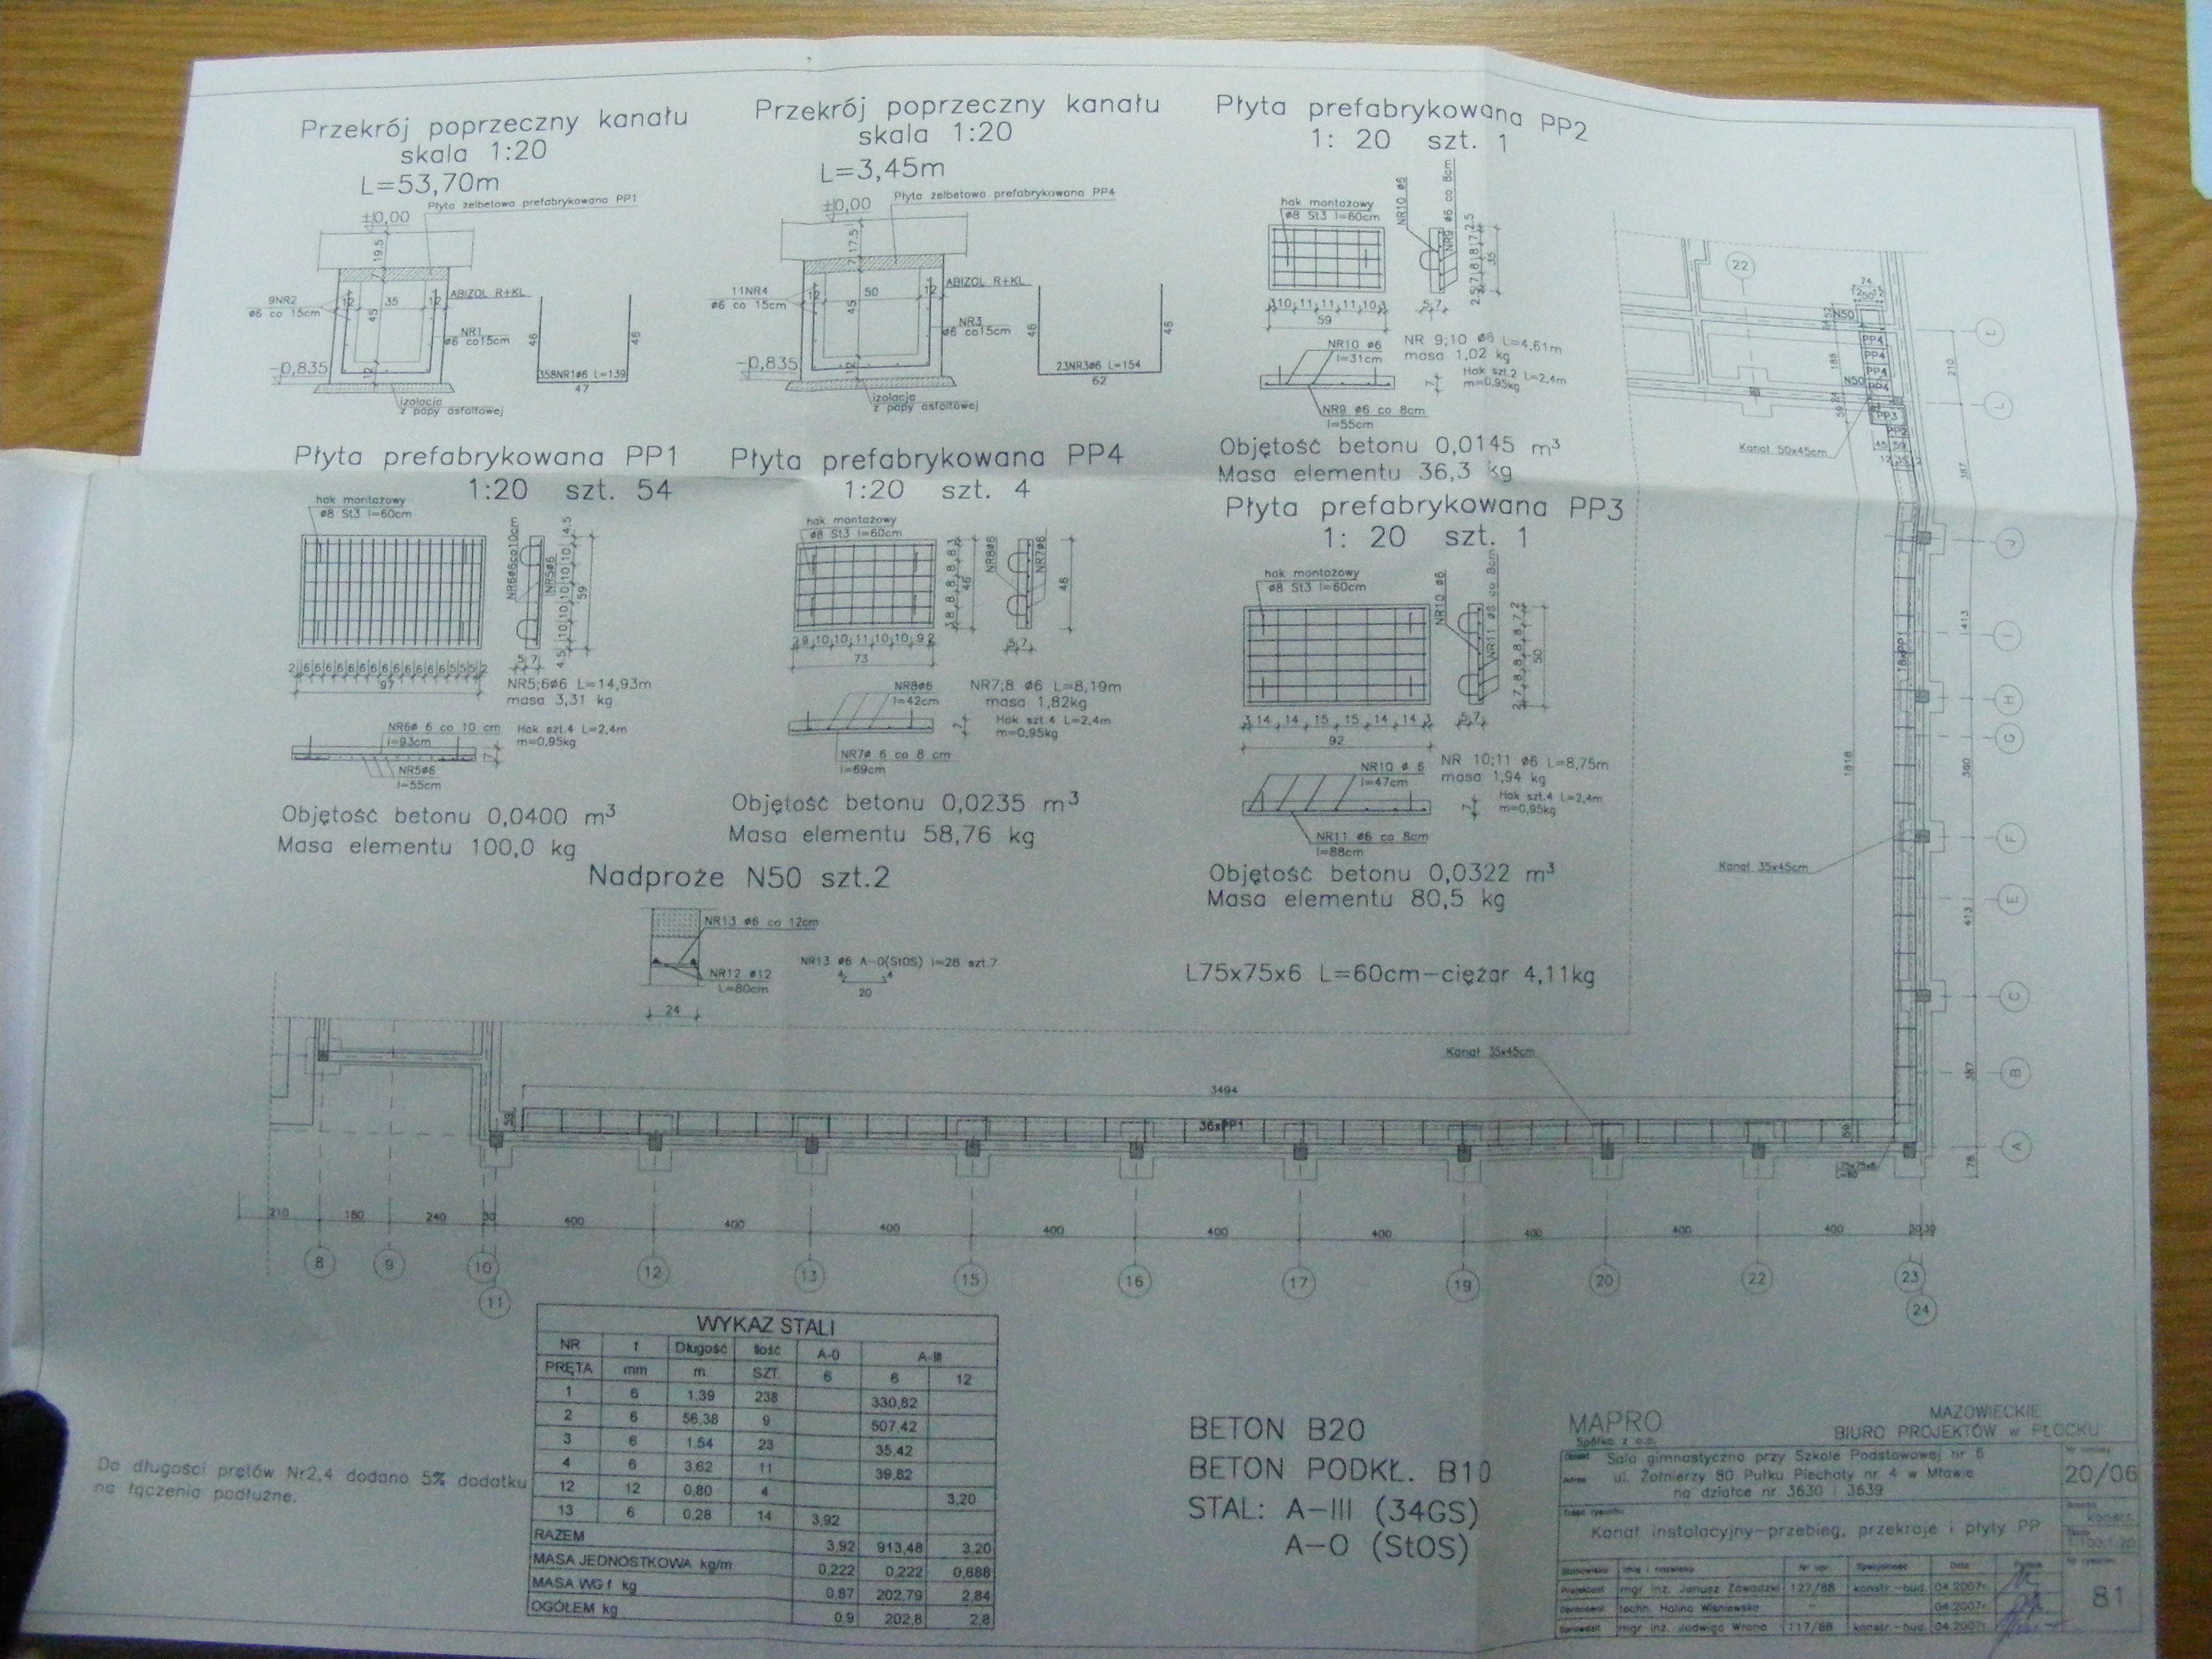 Przekrój poprzeczny kanału
skala 1:20
L=53,70m
Płyta żelbetowa prefabrykowana PP1
±0,00
19.5
7
9NR2
ø6 co 15cm
12
35
12
45
ABIZOL R+KL
NR1
ø6 co15cm
-0,835
12
izolacja
z papy asfaltowej
46
46
358NR1ø6 L=139
47
Przekrój poprzeczny kanału
skala 1:20
L=3,45m
Płyta żelbetowa prefabrykowana PP4
±0,00
17.5
7
11NR4
ø6 co 15cm
12
50
12
45
ABIZOL R+KL
NR3
ø6 co15cm
-0,835
12
izolacja
z papy asfaltowej
46
46
23NR3ø6 L=154
62
Płyta prefabrykowana PP2
1: 20 szt. 1
hak montażowy
ø8 St3 l=60cm
NR10 ø6
NR9 ø6 co 8cm
2.5 7 8 8 7 2.5
35
3 10 11 11 11 10 3
59
5 7
NR10 ø6
l=31cm
NR 9;10 ø6 L=4,61m
masa 1,02 kg
Hak szt.2 L=2,4m
m=0,95kg
7
NR9 ø6 co 8cm
l=55cm
Objętość betonu 0,0145 m³
Masa elementu 36,3 kg
Płyta prefabrykowana PP1
1:20 szt. 54
hak montażowy
ø8 St3 l=60cm
NR6ø6co10cm
NR5ø6
4.5 10 10 10 10 10 4.5
59
2 6 6 6 6 6 6 6 6 6 6 6 6 6 5 5 5 2
97
5 7
NR5;6ø6 L=14,93m
masa 3,31 kg
NR6ø 6 co 10 cm
l=93cm
Hak szt.4 L=2,4m
m=0,95kg
7
NR5ø6
l=55cm
Objętość betonu 0,0400 m³
Masa elementu 100,0 kg
Płyta prefabrykowana PP4
1:20 szt. 4
hak montażowy
ø8 St3 l=60cm
3 8 8 8 8 8 3
46
NR8ø6
NR7ø6
46
2 9 10 10 11 10 10 9 2
73
5 7
NR8ø6
l=42cm
NR7;8 ø6 L=8,19m
masa 1,82kg
Hak szt.4 L=2,4m
m=0,95kg
7
NR7ø 6 co 8 cm
l=69cm
Objętość betonu 0,0235 m³
Masa elementu 58,76 kg
Płyta prefabrykowana PP3
1: 20 szt. 1
hak montażowy
ø8 St3 l=60cm
NR10 ø6
NR11 ø6 co 8cm
2 7 8 8 8 8 7 2
50
3 14 14 15 15 14 14 3
92
5 7
NR10 ø 6
l=47cm
NR 10;11 ø6 L=8,75m
masa 1,94 kg
Hak szt.4 L=2,4m
m=0,95kg
7
NR11 ø6 co 8cm
l=88cm
Objętość betonu 0,0322 m³
Masa elementu 80,5 kg
Nadproże N50 szt.2
NR13 ø6 co 12cm
NR12 ø12
L=80cm
24
NR13 ø6 A-0(StOS) l=28 szt.7
4 4
20
L75x75x6 L=60cm-ciężar 4,11kg
22
74
50
N50
PP4
PP4
PP4
PP4
N50
PP3
PP2
188
59
45 59
Kanał 50x45cm
210
387
Ł
L
J
I
H
G
F
E
C
B
A
413
360
413
387
78
18xPP1
1818
Kanał 35x45cm
Kanał 35x45cm
3494
36xPP1
59
59
L75x75x6
L=60
210
180
240
30
400
400
400
400
400
400
400
400
400
30 30
8
9
10
11
12
13
15
16
17
19
20
22
23
24
WYKAZ STALI
NR f Długość Ilość A-0 A-III
PRĘTA mm m SZT. 6 6 12
1 6 1,39 238 330,82
2 6 56,38 9 507,42
3 6 1,54 23 35,42
4 6 3,62 11 39,82
12 12 0,80 4 3,20
13 6 0,28 14 3,92
RAZEM 3,92 913,48 3,20
MASA JEDNOSTKOWA kg/m 0,222 0,222 0,888
MASA WG f kg 0,87 202,79 2,84
OGÓŁEM kg 0,9 202,8 2,8
Do długości prętów Nr2,4 dodano 5% dodatku
na łączenia podłużne.
BETON B20
BETON PODKŁ. B10
STAL: A-III (34GS)
A-O (StOS)
MAPRO
Spółka z o.o.
MAZOWIECKIE
BIURO PROJEKTÓW w PŁOCKU
Sala gimnastyczna przy Szkole Podstawowej nr 6
Adres
ul. Żołnierzy 80 Pułku Piechoty nr 4 w Mławie
na działce nr 3630 i 3639
20/06
Kanał instalacyjny-przebieg, przekroje i płyty PP
konstr.
1:100;1:20
Stanowisko Imię i nazwisko Nr upr. Specjalność Data Podpis
Projektant mgr inż. Janusz Zawadzki 127/88 konstr.-bud. 04.2007r.
Opracował techn. Halina Wiśniewska - 04.2007r.
Sprawdził mgr inż. Jadwiga Wrona 117/88 konstr.-bud. 04.2007r.
81